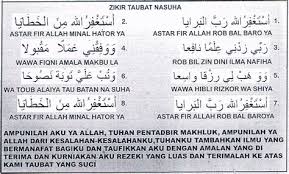 ZIKIR TAUBAT NASUHA
أَسْتَغْفِرُ اللهَ رَبَّ الْبَرَايَا
أَسْتَغْفِرُ اللهَ مِنَ الْخَطَايَا
ASTAR FIR ALLAH MINAL HATOR YA
ASTAR FIR ALLAH ROB BAL BARO YA
رَبِّي زِدْنِي عِلْمًا نَافِعًا
وَوَفِّقْنِي عَمَلًا مَقْبُولًا
WAWA FIQNI AMALA MAKBU LA
ROB BIL ZIN DINI ILMA NAFIHA
وَوَهِبْ لِي رِزْقًا وَاسِعًا
وَتُبْ عَلَيَّ تَوْبَةً نَصُوحًا
WA TOUB ALAIYA TAU BATAN NA SUHA
WAWA HIBLI RIZKOR WA SHIYA
أَسْتَغْفِرُ اللهَ رَبَّ الْبَرَايَا
أَسْتَغْفِرُ اللهَ مِنَ الْخَطَايَا
ASTAR FIR ALLAH MINAL HATOR YA
ASTAR FIR ALLAH ROB BAL BARO YA
AMPUNILAH AKU YA ALLAH, TUHAN PENTADBIR MAKHLUK, AMPUNILAH YA
ALLAH DARI KESALAHAN-KESALAHANKU,TUHANKU TAMBAHKAN ILMU YANG
BERMANAFAT BAGIKU DAN TAUFIKKAN AKU DENGAN AMALAN YANG DI
TERIMA DAN KURNIAKAN AKU REZEKI YANG LUAS DAN TERIMALAH KE ATAS
KAMI TAUBAT YANG SUCI